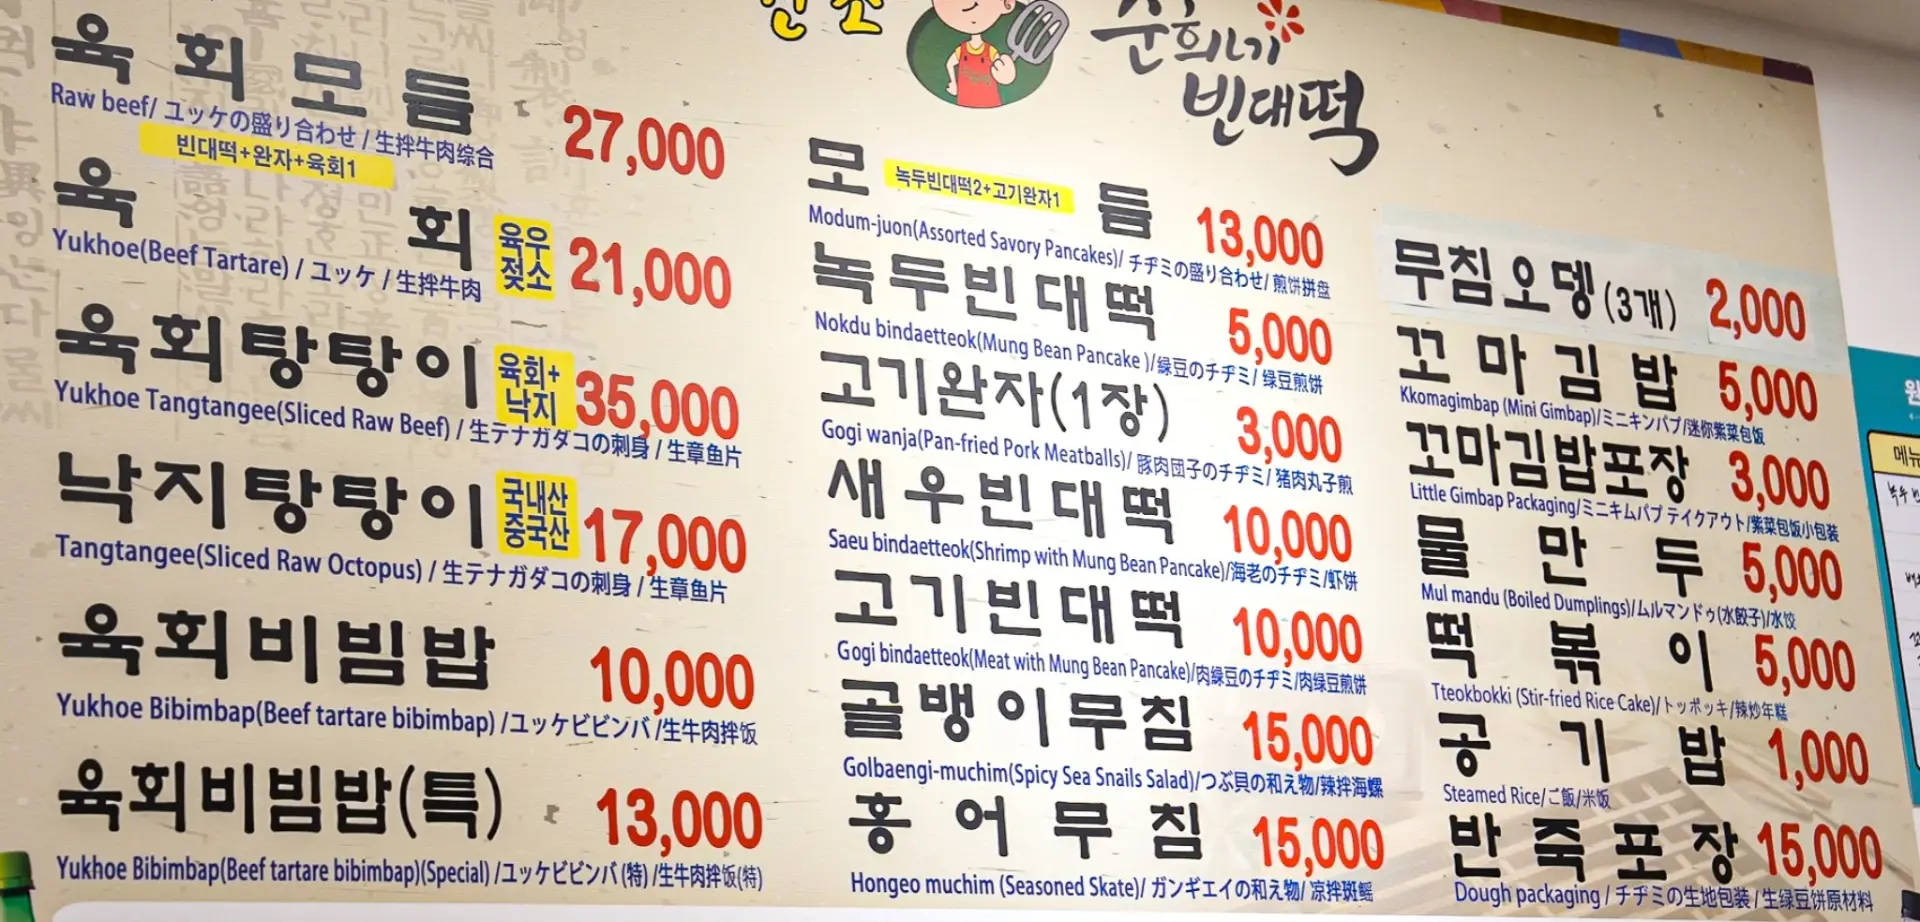 원조
순희네
빈대떡
육회모듬
27,000
Raw beef/ ユッケの盛り合わせ / 生拌牛肉综合
빈대떡+완자+육회1
육회
육우
젖소
21,000
Yukhoe(Beef Tartare) / ユッケ / 生拌牛肉
육회탕탕이
육회+
낙지
35,000
Yukhoe Tangtangee(Sliced Raw Beef) / 生テナガダコの刺身 / 生章鱼片
낙지탕탕이
국내산
중국산
17,000
Tangtangee(Sliced Raw Octopus) / 生テナガダコの刺身 / 生章鱼片
육회비빔밥
10,000
Yukhoe Bibimbap(Beef tartare bibimbap) /ユッケビビンバ /生牛肉拌饭
육회비빔밥(특)
13,000
Yukhoe Bibimbap(Beef tartare bibimbap)(Special) /ユッケビビンバ (特) /生牛肉拌饭(特)
모듬
녹두빈대떡2+고기완자1
13,000
Modum-juon(Assorted Savory Pancakes)/ チヂミの盛り合わせ/ 煎饼拼盘
녹두빈대떡
5,000
Nokdu bindaetteok(Mung Bean Pancake )/绿豆のチヂミ/ 绿豆煎饼
고기완자(1장)
3,000
Gogi wanja(Pan-fried Pork Meatballs)/ 豚肉団子のチヂミ/ 猪肉丸子煎
새우빈대떡
10,000
Saeu bindaetteok(Shrimp with Mung Bean Pancake)/海老のチヂミ/虾饼
고기빈대떡
10,000
Gogi bindaetteok(Meat with Mung Bean Pancake)/肉緑豆のチヂミ/肉绿豆煎饼
골뱅이무침
15,000
Golbaengi-muchim(Spicy Sea Snails Salad)/つぶ貝の和え物/辣拌海螺
홍어무침
15,000
Hongeo muchim (Seasoned Skate)/ ガンギエイの和え物/ 凉拌斑鳐
무침오뎅(3개)
2,000
꼬마김밥
5,000
Kkomagimbap (Mini Gimbap)/ミニキンパプ/迷你紫菜包饭
꼬마김밥포장
3,000
Little Gimbap Packaging/ミニキムパプ テイクアウト/紫菜包饭小包装
물만두
5,000
Mul mandu (Boiled Dumplings)/ムルマンドゥ(水餃子)/水饺
떡볶이
5,000
Tteokbokki (Stir-fried Rice Cake)/トッポッキ/辣炒年糕
공기밥
1,000
Steamed Rice/ご飯/米饭
반죽포장
15,000
Dough packaging / チヂミの生地包装 / 生绿豆饼原材料